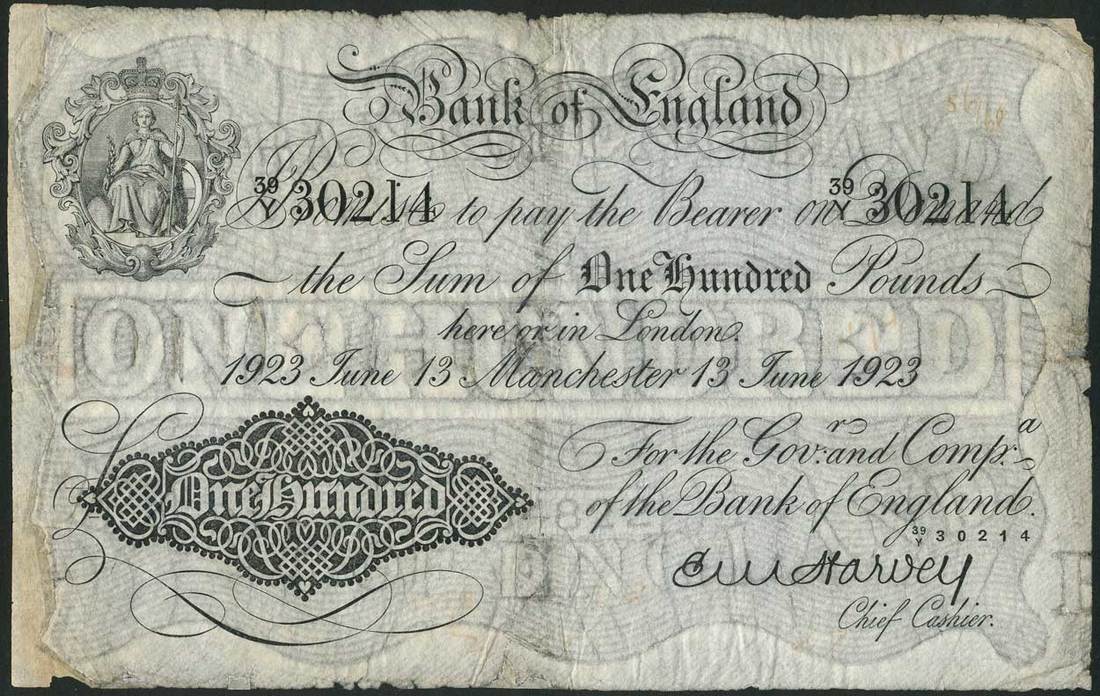 Bank of England
39/Y 30214 39/Y 30214
Promise to pay the Bearer on Demand
the Sum of One Hundred Pounds
here or in London.
1923 June 13 Manchester 13 June 1923
ONE HUNDRED
For the Gov.r and Comp.a
of the Bank of England.
39/Y 30214
£ One Hundred
E M Harvey
Chief Cashier.